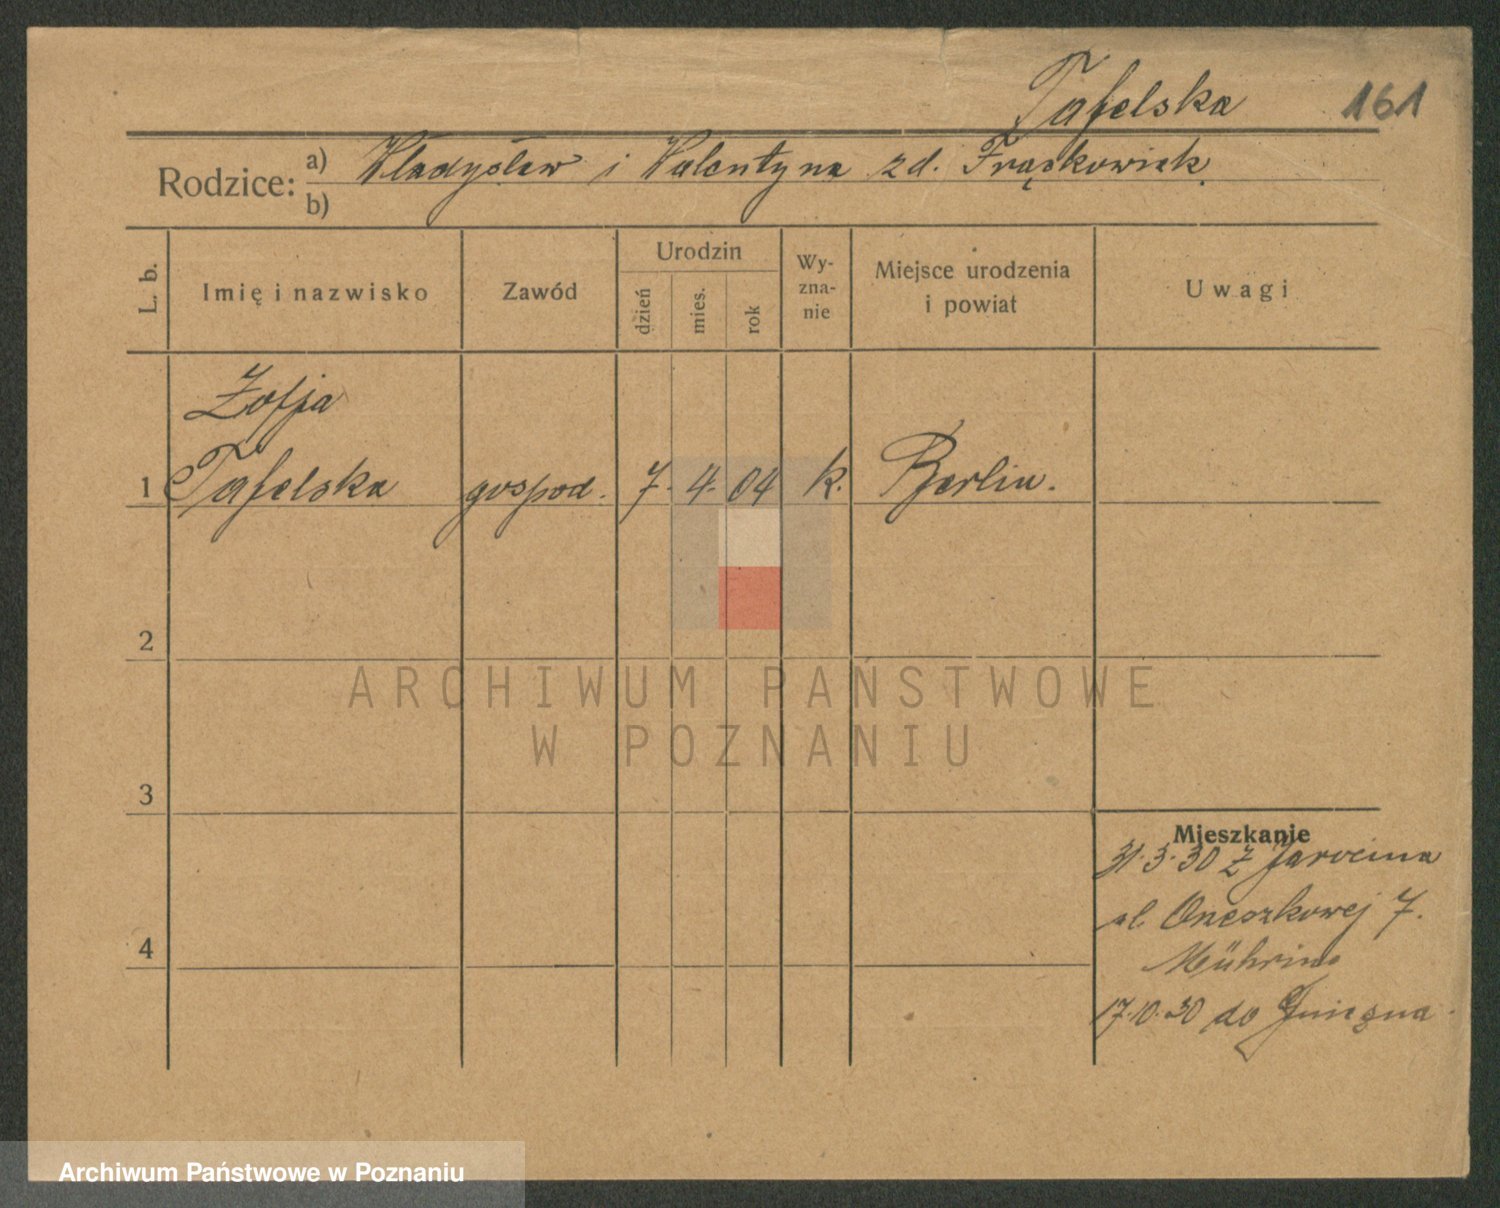 Tafelska 161
Rodzice: a) Władysław i Walentyna zd. Frąckowiak
b)
L. b.
Imię i nazwisko
Zawód
Urodzin
dzień
mies.
rok
Wy-
zna-
nie
Miejsce urodzenia
i powiat
Uwagi
Zofja
1 Tafelska gospod. 7. 4. 04 k. Berlin.
2
ARCHIWUM PAŃSTWOWE
W POZNANIU
3
Mieszkanie
31.3.30 z Jarocina
ul. Orzeszkowej 7.
4
17.10.30 do Gniezna
Archiwum Państwowe w Poznaniu